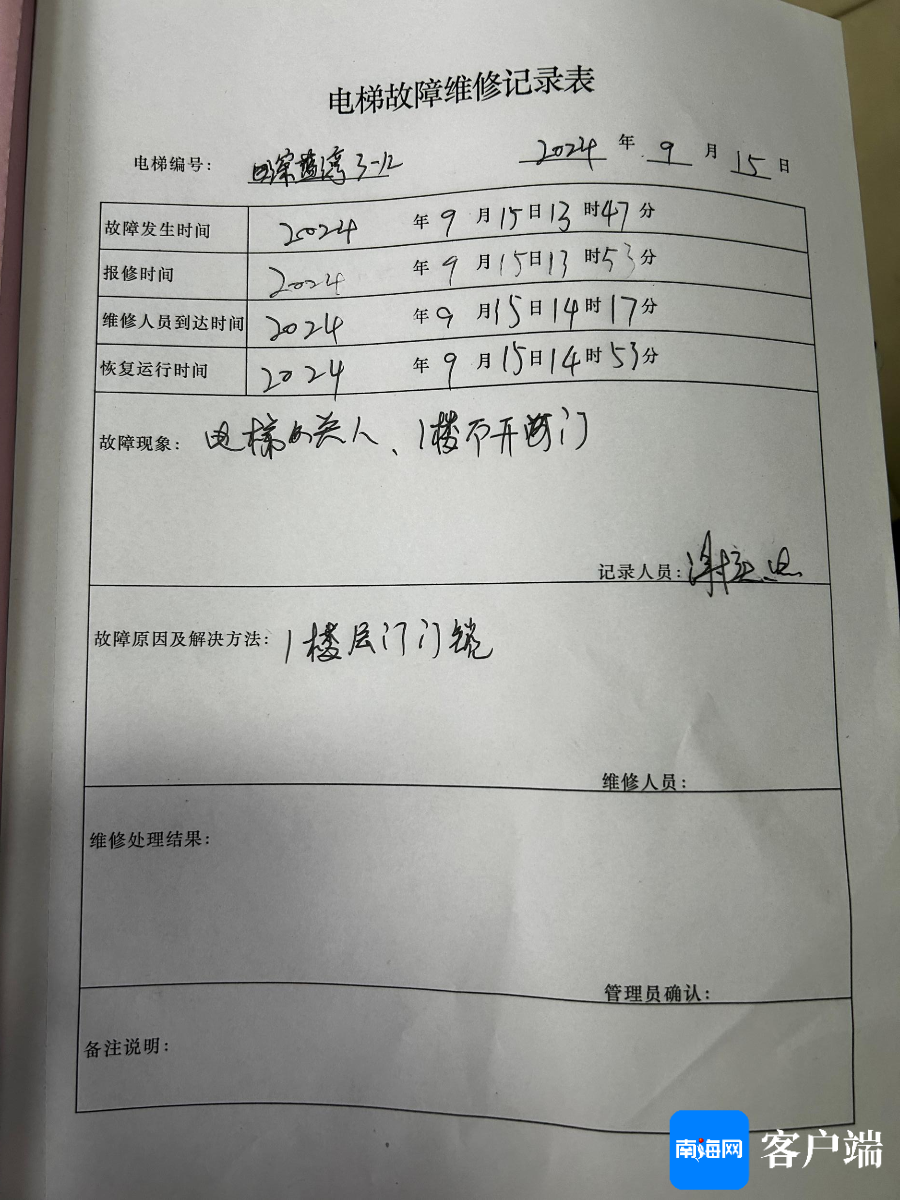 电梯故障维修记录表
电梯编号: 蓝湾3-12 2024年9月15日
故障发生时间 2024年9月15日13时47分
报修时间 2024年9月15日13时53分
维修人员到达时间 2024年9月15日14时17分
恢复运行时间 2024年9月15日14时53分
故障现象: 电梯关人、1楼不开门
记录人员:
故障原因及解决方法: 1楼层门门锁
维修人员:
维修处理结果:
管理员确认:
备注说明:
南海网 客户端